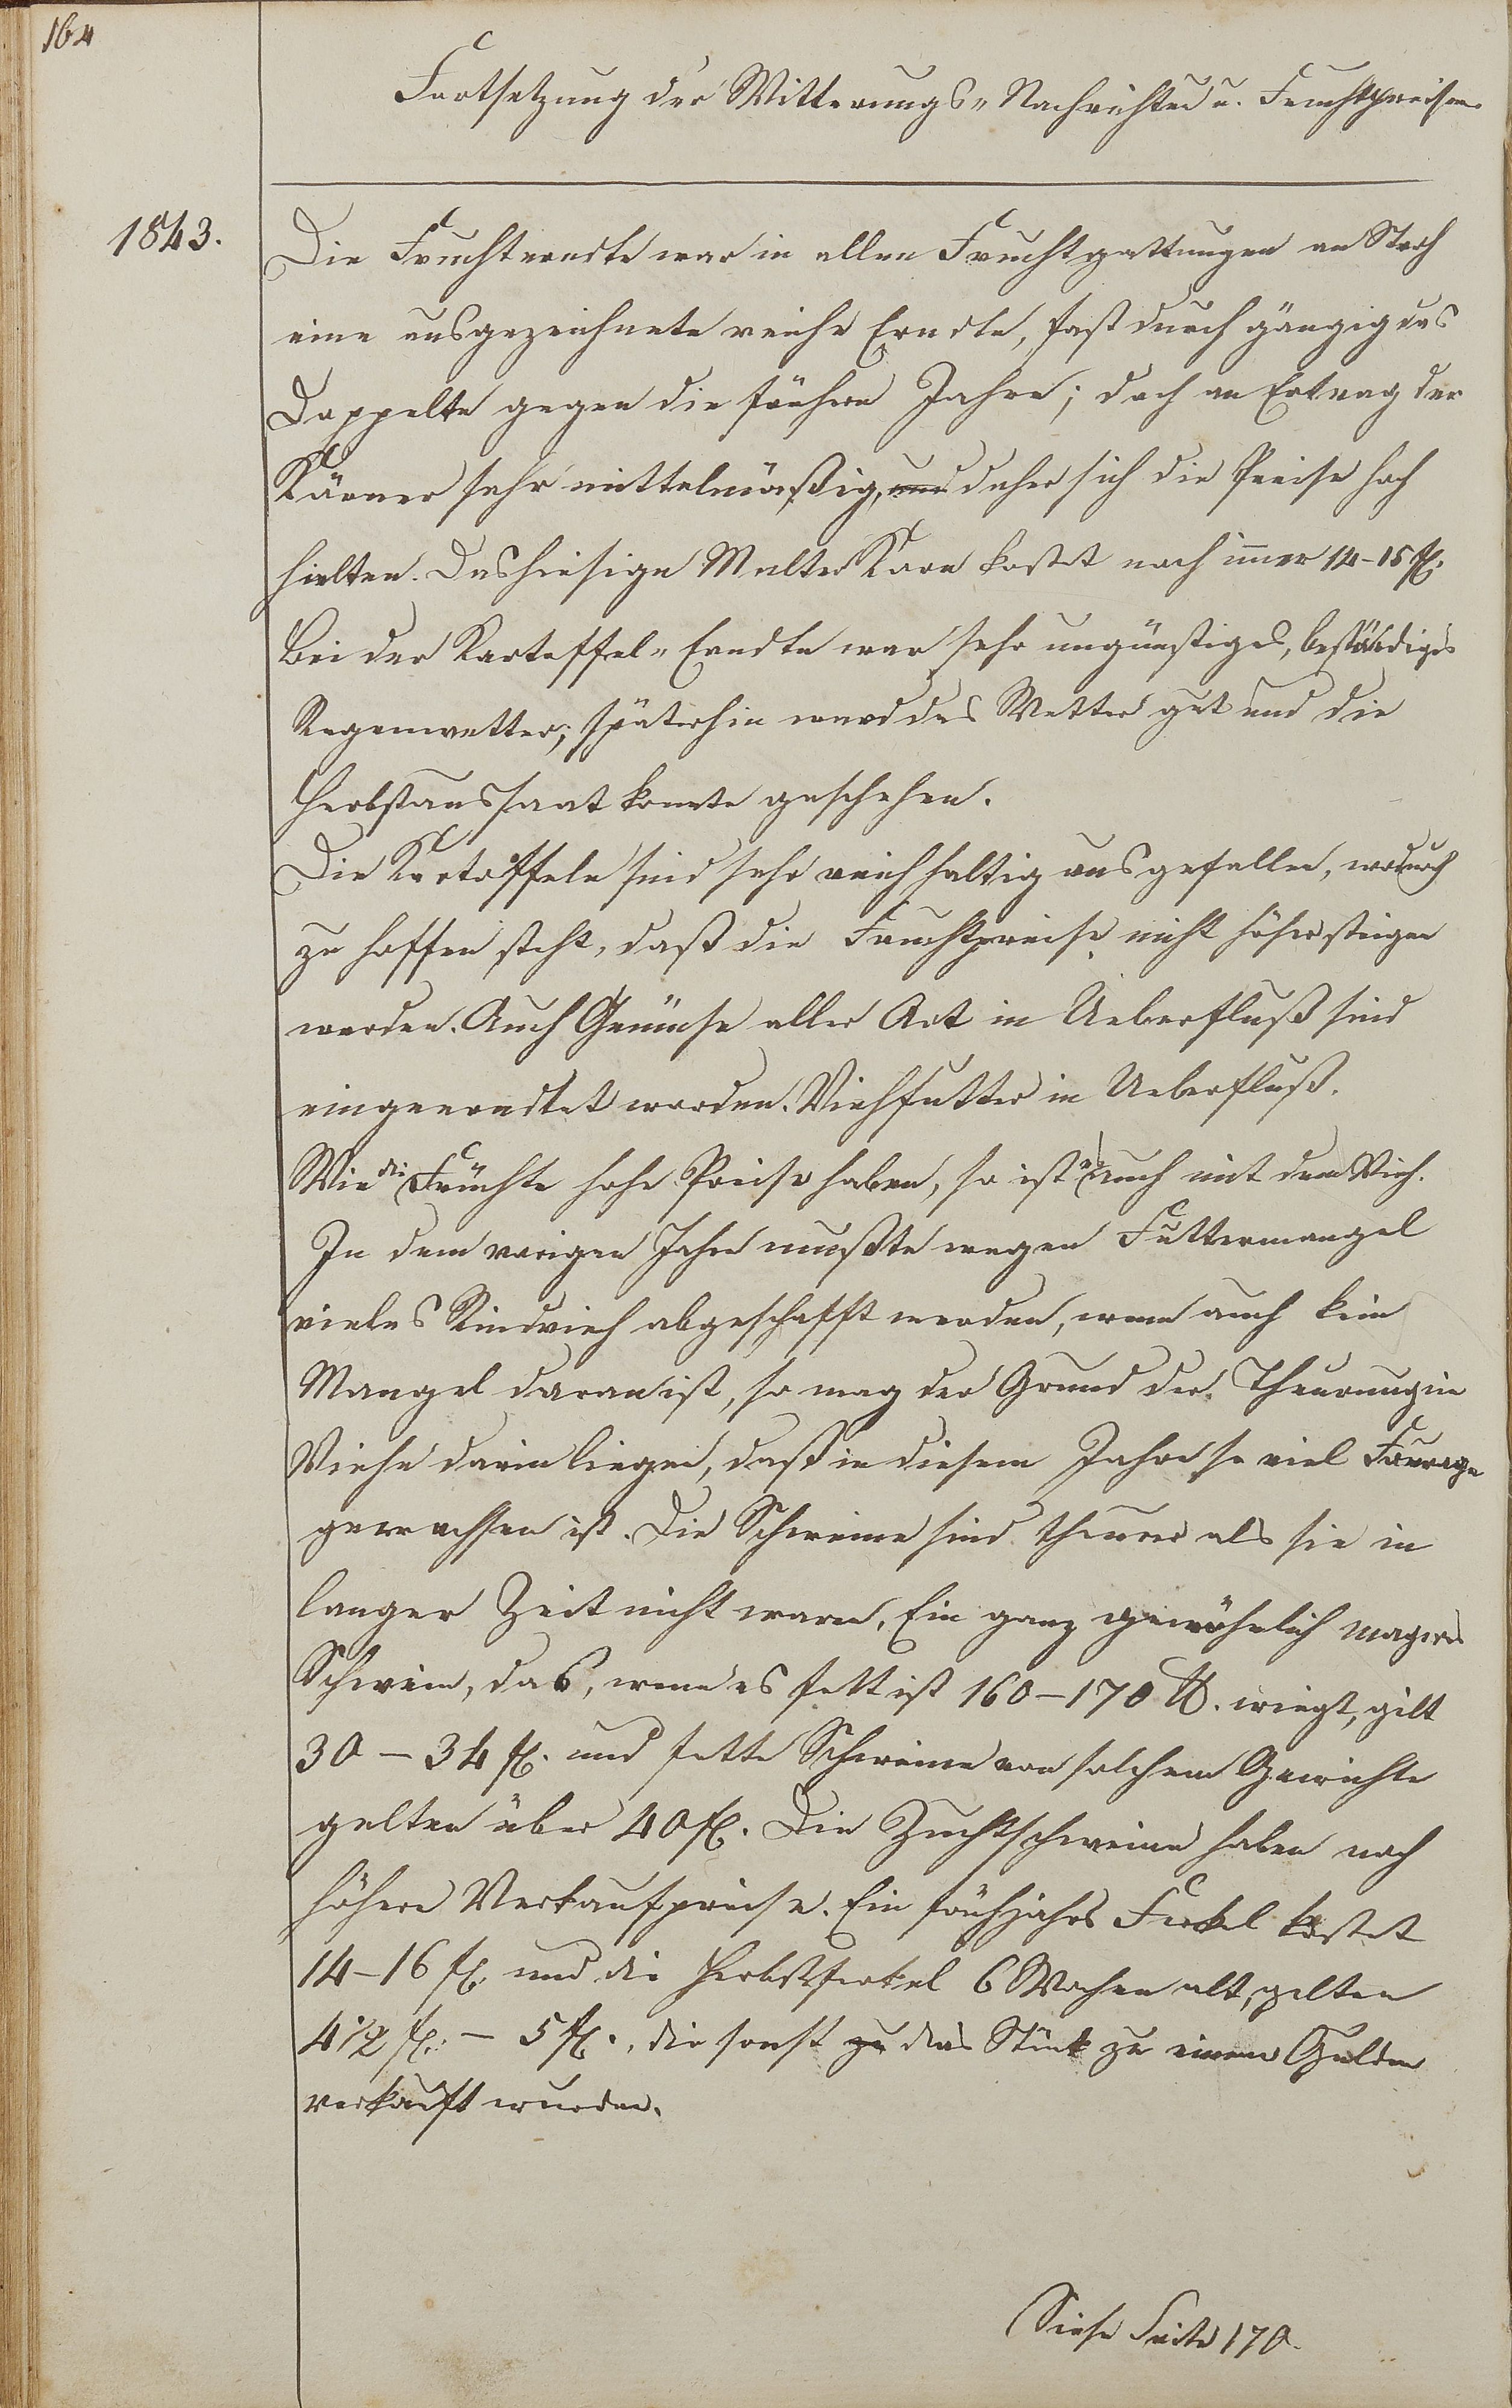 164
Fortsetzung der Witterungs-Nachrichten u. Fruchtpreisen
1843.
Die Fruchterndte war in allen Fruchtgattungen an Stroh
eine ausgezeichnete reiche Erndte, fast durch gängig das
Doppelte gegen die frühern Jahre; doch an Ertrag der
Körner sehr mittelmäßig, und daher sich die Preise hoch
hielten. Das hiesige Malter Korn kostet noch im̅er 14-15 fl.
Bei der Kartoffel-Erndte war sehr ungünstiges, beständiges
Regenwetter; späterhin ward das Wetter gut und die
Herbstaussaat konnte geschehen.
Die Kartoffeln sind sehr reichhaltig ausgefallen, wodurch
zu hoffen steht, daß die Fruchtpreise nicht höher steigen
werden. Auch Gemüse aller Art in Ueberfluß sind
eingeerndtet worden. Viehfutter in Ueberfluß.
Wie die Früchte hohe Preise haben, so ist es auch mit dem Vieh.
In dem vorigen Jahre mußte wegen Futtermangel
vieles Rindvieh abgeschafft werden, wenn auch kein
Mangel daran ist, so mag der Grund der Theurung im
Viehe darin liegen, daß in diesem Jahre so viel Fourage
gewachsen ist. Die Schweine sind theurer als sie in
langer Zeit nicht waren, Ein ganz gewöhnlich mageres
Schwein, das, wenn es fett ist 160-170 ℔. wiegt, gilt
30 - 34 fl. und fette Schweine von solchem Gewichte
gelten über 40 fl. Die Zuchtschweine haben noch
höhere Verkaufpreise. Ein frühjahrs Ferkel kostet
14-16 fl. und die Herbstferkel 6 Wochen alt, gelten
4 1/2 fl. - 5 fl., die sonst zu das Stück zu einem Gulden
verkauft wurden.
Siehe Seite 170.